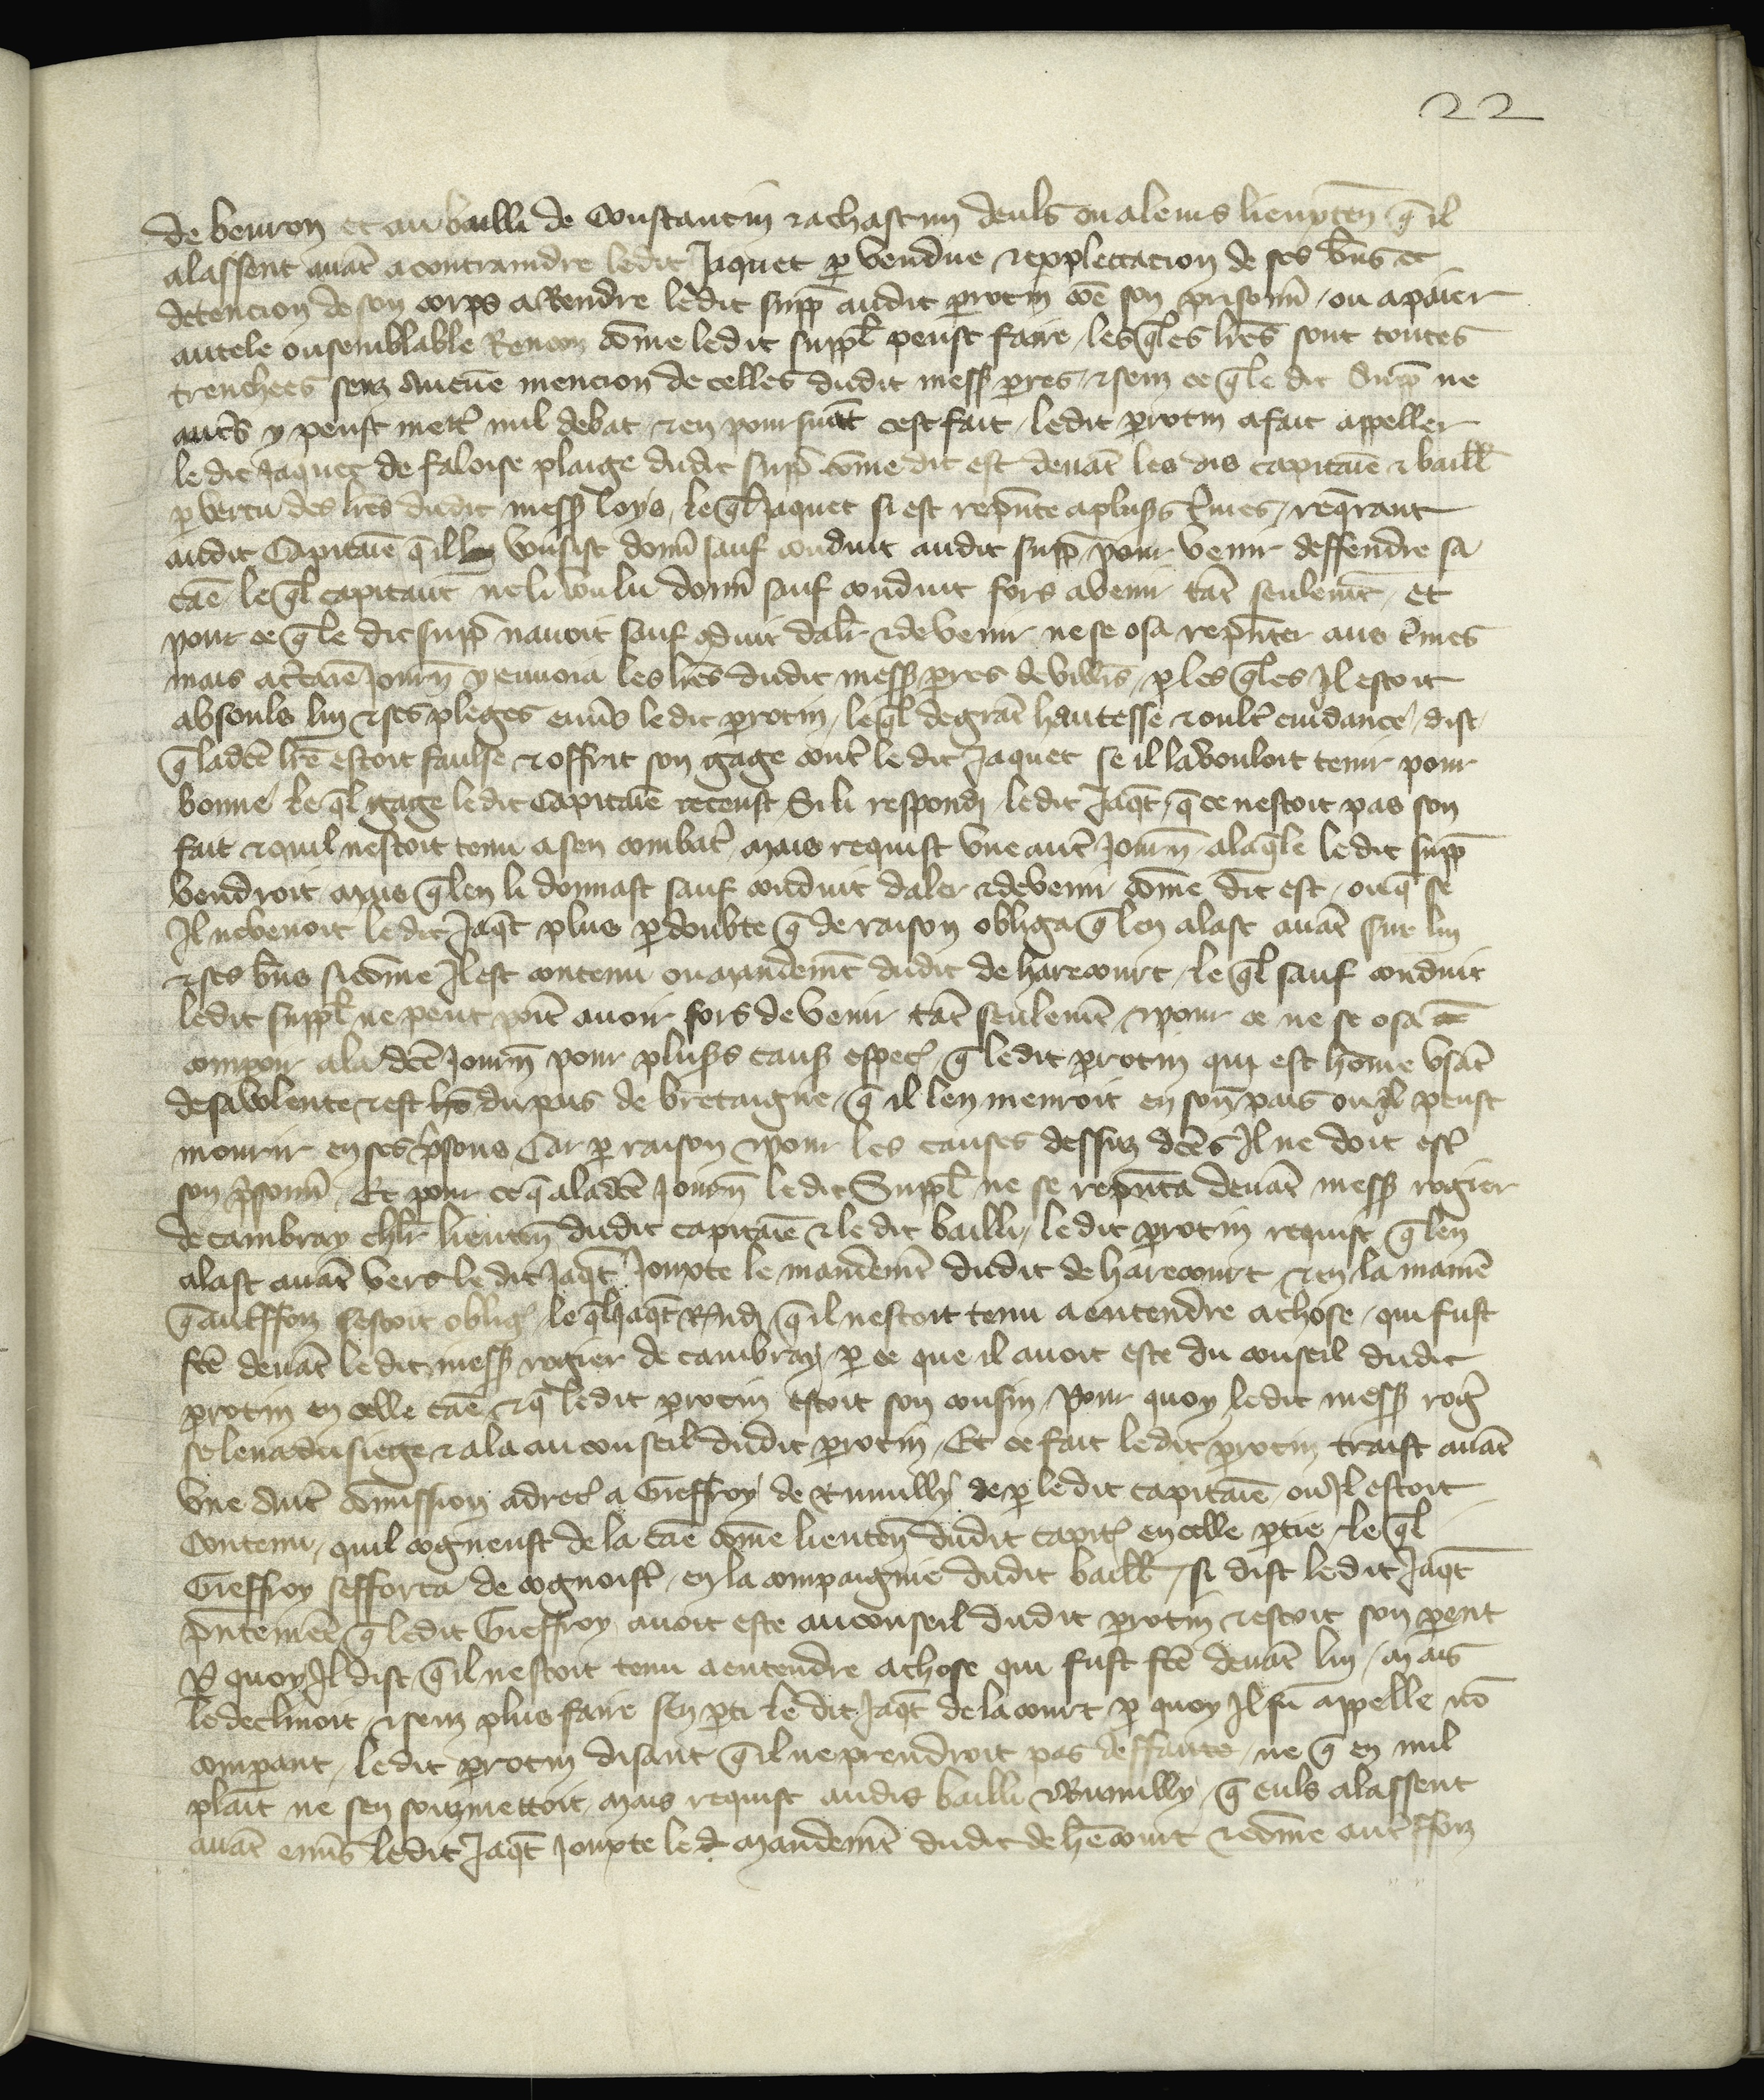 22
de beuron et au bailli de Constantin & a chascun deuls ou a leurs lieuxten̄ q̄ il
alassent auāt a contraindre ledit Jaquet p vendue & exploictacion de ses biēs et
detencion de son corps a Rendre ledit supp̄ audit perotin cōe son prisonn̄ / ou a paier
autele ou semblable Rencon cōme ledit suppl̄ peust faire / lesq̄les lr̄es sont toutes
trenchees senz Aucūe mencion de celles dudit mess pierres / & senz ce q̄ le dit Supp̄ ne
autr̄s y peust mett̄ nul debat / & en poursuiāt cest fait / ledit perotin a fait appeller
le dit Jaquet de faloise plaige dudit supp̄ cōme dit est deuāt les dis capitaīe & baill̄
p vertu des lr̄es dudit mess loys / le q̄l Jaquet si est rep̄nte a plusrs t̄mes / req̄rant
audit Capitaīe q̄ il vousist donn̄ sauf conduit audit supp̄ pour venir deffendre sa
caē / le q̄l capitaīe ne li voulu donn̄ sauf conduit fors a venir tāt seulemt̄ / Et
pour ce q̄ le dit supp̄ nauoit sauf cōduit daler & de venir ne se osa rep̄nter aus t̄mes
mais a c̄taīe Journ̄ y enuoia les lr̄es dudit mess pierres de villrs / p les q̄les Jl estoit
absouls luy & ses pleges enuers le dit perotin / le q̄l de grāt hautesse & oult̄ cuidance / dist
q̄ ladc̄e lr̄e estoit faulse & offrit son gage cont̄ le dit Jaquet se il la vouloit tenir pour
bonne / le q̄l gage ledit Capitaīe receust / Si li respondi ledit Jaq̄t / q̄ ce nestoit pas son
fait & quil nestoit tenu a sen combat̄ / mais requist vne aut̄ Journ̄ / a la q̄le le dit supp̄
vendroit / mais q̄ len li donnast sauf conduit daler & de venir / cōme dit est / ou q̄ se
Jl ne venoit ledit Jaq̄t plus p doubte q̄ de raison obliga q̄ len alast auāt sur luy
& ses biēs si cōme Jl est contenu ou mandemt̄ dudit de harecourt / le q̄l sauf conduit
ledit suppl̄ ne peut poīt auoir fors de venir tāt seulemt̄ & pour ce ne se osa
compoir a la dc̄e Journ̄ pour plusrs causes espec̄ / q̄ ledit perotin qui est hōme vsāt
de sa volente & est hō du pais de bretaigne / q̄ il len menroit en son pais ou Jl peust
mourir en ses p̄sons Car p raison & pour les causes dessuz dc̄es Jl ne doit est̄
son p̄sonn̄ / Et pour ce q̄ a ladc̄e Journ̄ ledit Suppl̄ ne se rep̄nta deuāt mess rogier
de cambray chl̄r lieuten̄ dudit capitaīe & le dit bailli / ledit perotin requist q̄ len
alast auāt vers le dit Jaq̄t Jouxte le mandemt̄ dudit de harecourt & en la maniē
q̄ aut̄ffoiz sestoit obliḡ / le q̄l Jaq̄t Rn̄di q̄ il nestoit tenu a entendre a chose / qui fust
fc̄e deuāt le dit mess rogier de cambray / p ce que il auoit este du conseil dudit
perotin en celle caē / & q̄ ledit perotin estoit son cousin / Pour quoy ledit mess roḡ
se leua du siege & ala au conseil dudit perotin / Et ce fait ledit perotin traist auāt
vne aut̄ cōmission adrec̄ a Gieffroy de Rumilly de p ledit capitaīe / ou Jl estoit
Contenu / quil cogneust de la caē cōme lieuten̄ dudit capit̄ en celle ptie / le q̄l
Gieffroy sefforca de cognoist̄ / en la compaignie dudit baill̄ / si dist ledit Jaq̄t
p̄ntemēt q̄ ledit Gieffroy auoit este au conseil dudit perotin & estoit son pent
P̄ quoy Jl dist / q̄ il nestoit tenu a entendre a chose qui fust fc̄e deuāt luy / mais
le declinoit / & senz plus faire sen pti le dit Jaq̄t de la court / p quoy Jl fu appelle nō
compant / ledit perotin disant q̄ il ne prendroit pas deffaute / ne q̄ en nul
plait ne sen soubzmettoit / mais requist audis bailli & Rumilly / q̄ euls alassent
auāt enūs ledit Jaq̄t Jouxte le d mandemt̄ dudit de hēcourt & cōme aut̄ffoiz